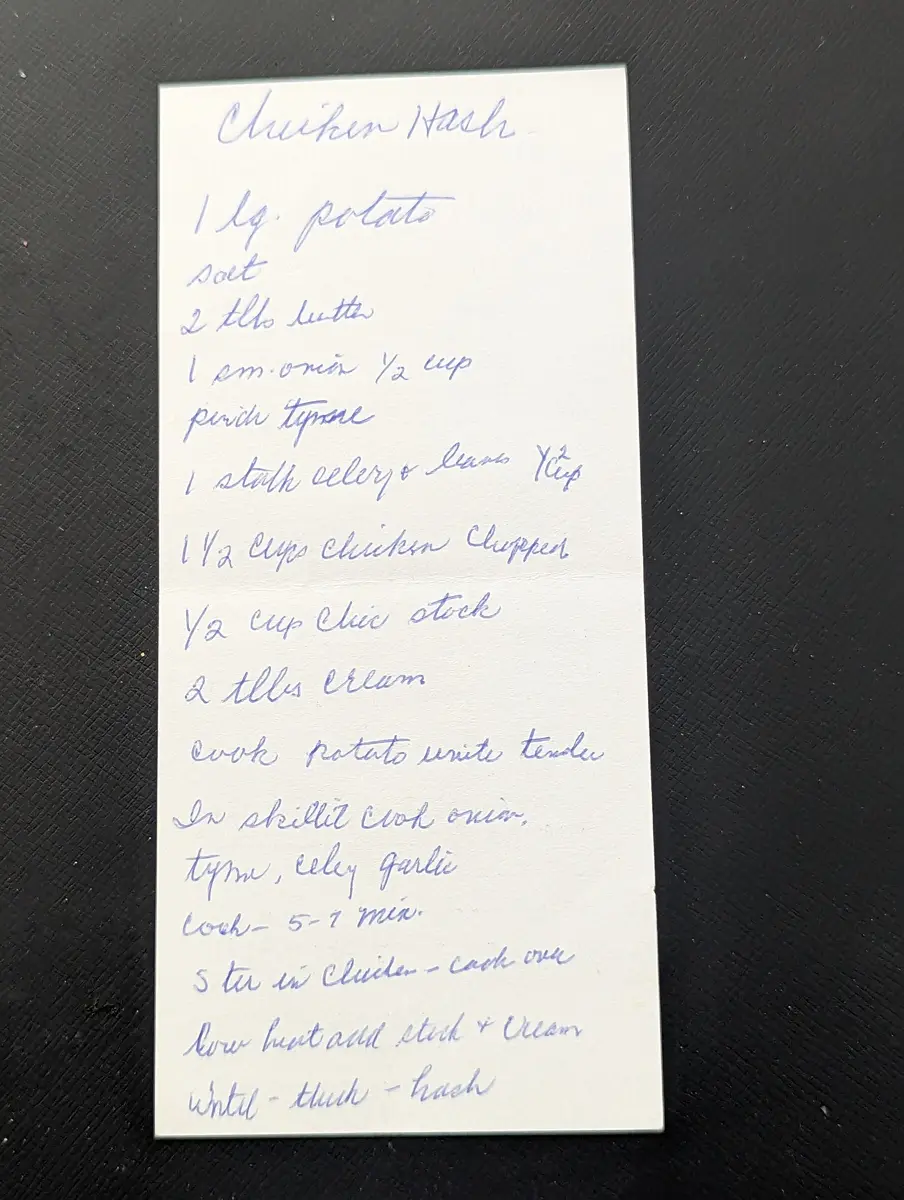 Chicken Hash
1 lg. potato
salt
2 tlbs butter
1 sm. onion 1/2 cup
pinch tyme
1 stalk celery & leaves 1/2 cup
1 1/2 cups chicken chopped
1/2 cup chic stock
2 tlbs cream
cook potato until tender
In skillit cook onion,
tyme, celey garlic
cook - 5-7 min.
Stir in chicken - cook over
low heat add stock + cream
until - thick - hash